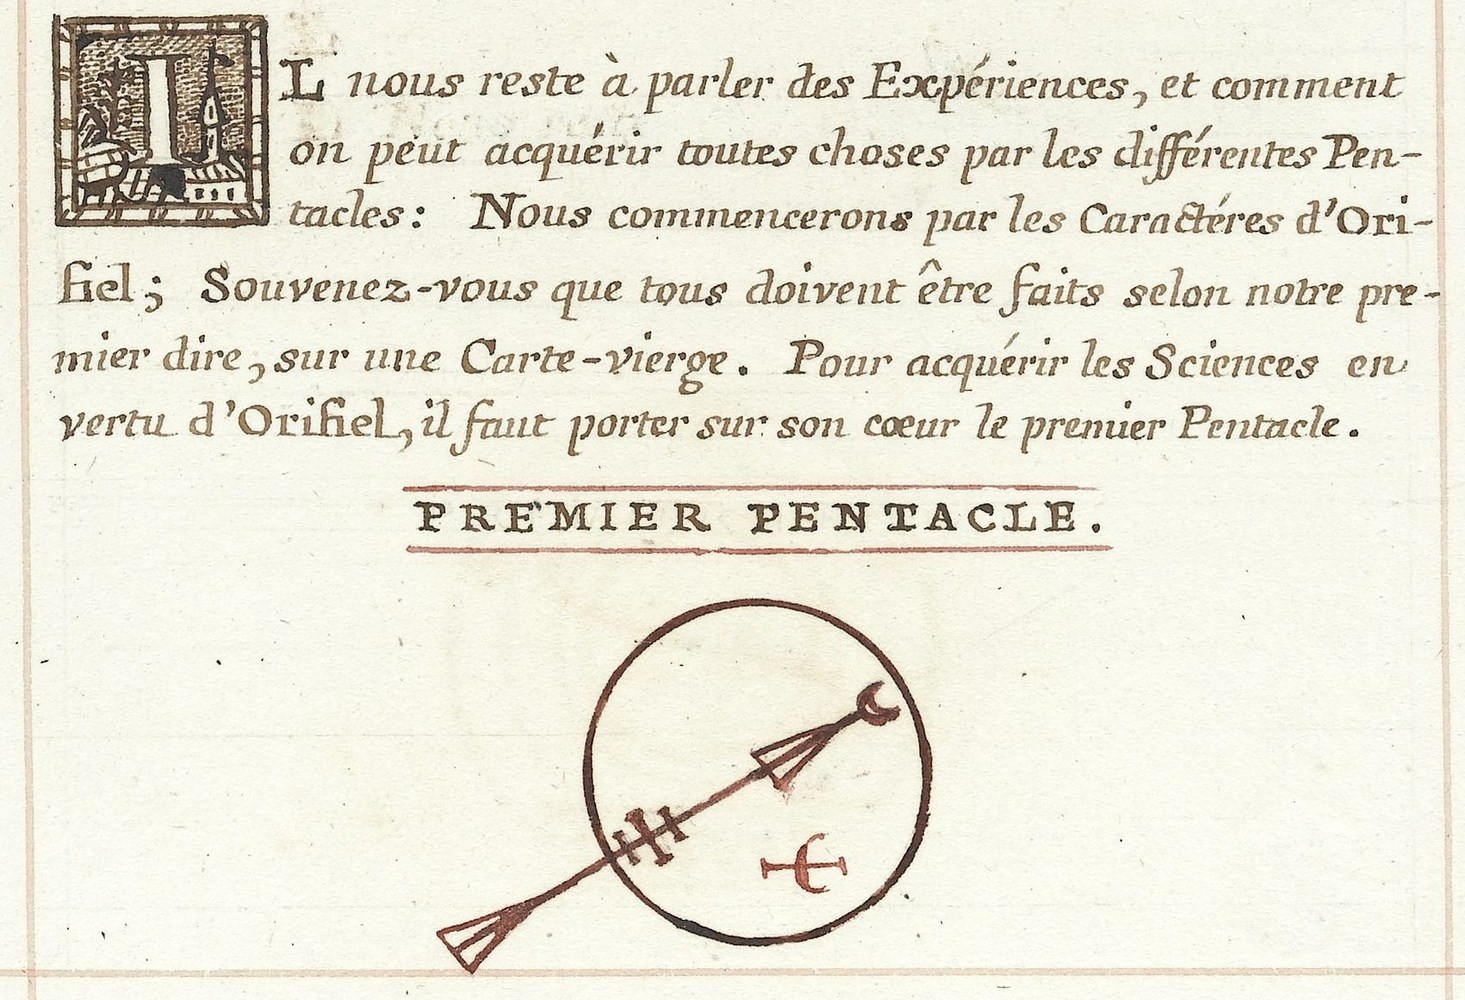 IL nous reste à parler des Expériences, et comment
on peut acquérir toutes choses par les différentes Pen-
tacles: Nous commencerons par les Caractéres d'Ori-
fiel; Souvenez-vous que tous doivent être faits selon notre pre-
mier dire, sur une Carte-vierge. Pour acquérir les Sciences en
vertu d'Orifiel, il faut porter sur son cœur le premier Pentacle.
PREMIER PENTACLE.